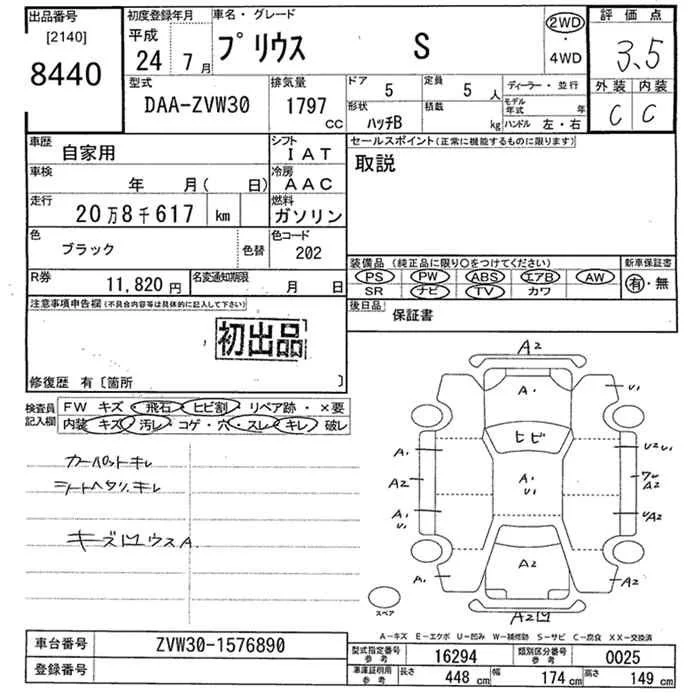 出品番号
[2140]
8440
初度登録年月
平成
24年 7月
車名・グレード
プリウス S
2WD
・
4WD
評価点
3.5
外装 内装
C C
型式
DAA-ZVW30
排気量
1797
CC
ドア
5
定員
5人
形状
ハッチB
積載
kg
ディーラー・並行
モデル年式 年
ハンドル 左・右
車歴
自家用
シフト
IAT
車検
年 月( 日)
冷房
AAC
走行
20万8千617 km
燃料
ガソリン
色
ブラック
色替
色コード
202
R券
11,820円
名変通知期限
月 日
セールスポイント(正常に機能するものに限ります)
取説
装備品(純正品に限り○をつけてください)
PS PW ABS エアB AW
SR ナビ TV カワ
新車保証書
有・無
後日品
保証書
注意事項申告欄(不具合内容等は具体的に記入して下さい)
初出品
修復歴 有〔箇所 〕
検査員
記入欄
FW キズ・飛石・ヒビ割・リペア跡・×要
内装 キズ・汚レ・コゲ・穴・スレ・キレ・破レ
カーペットキレ
シートヘタリ、キレ
キズ凹ウスA.
A2
A・
U1
ヒビ
A1
U2U1
A2
A・
U1
ワレ
A2
A1
U1
UA2
A1
A2
A2
A2凹
スペア
A-キズ E-エクボ U-凹み W-補修跡 S-サビ C-腐食 XX-交換済
車台番号
ZVW30-1576890
登録番号
型式指定番号
参考
16294
類別区分番号
参考
0025
車庫証明用
参考
長さ
448 cm
幅
174 cm
高さ
149 cm